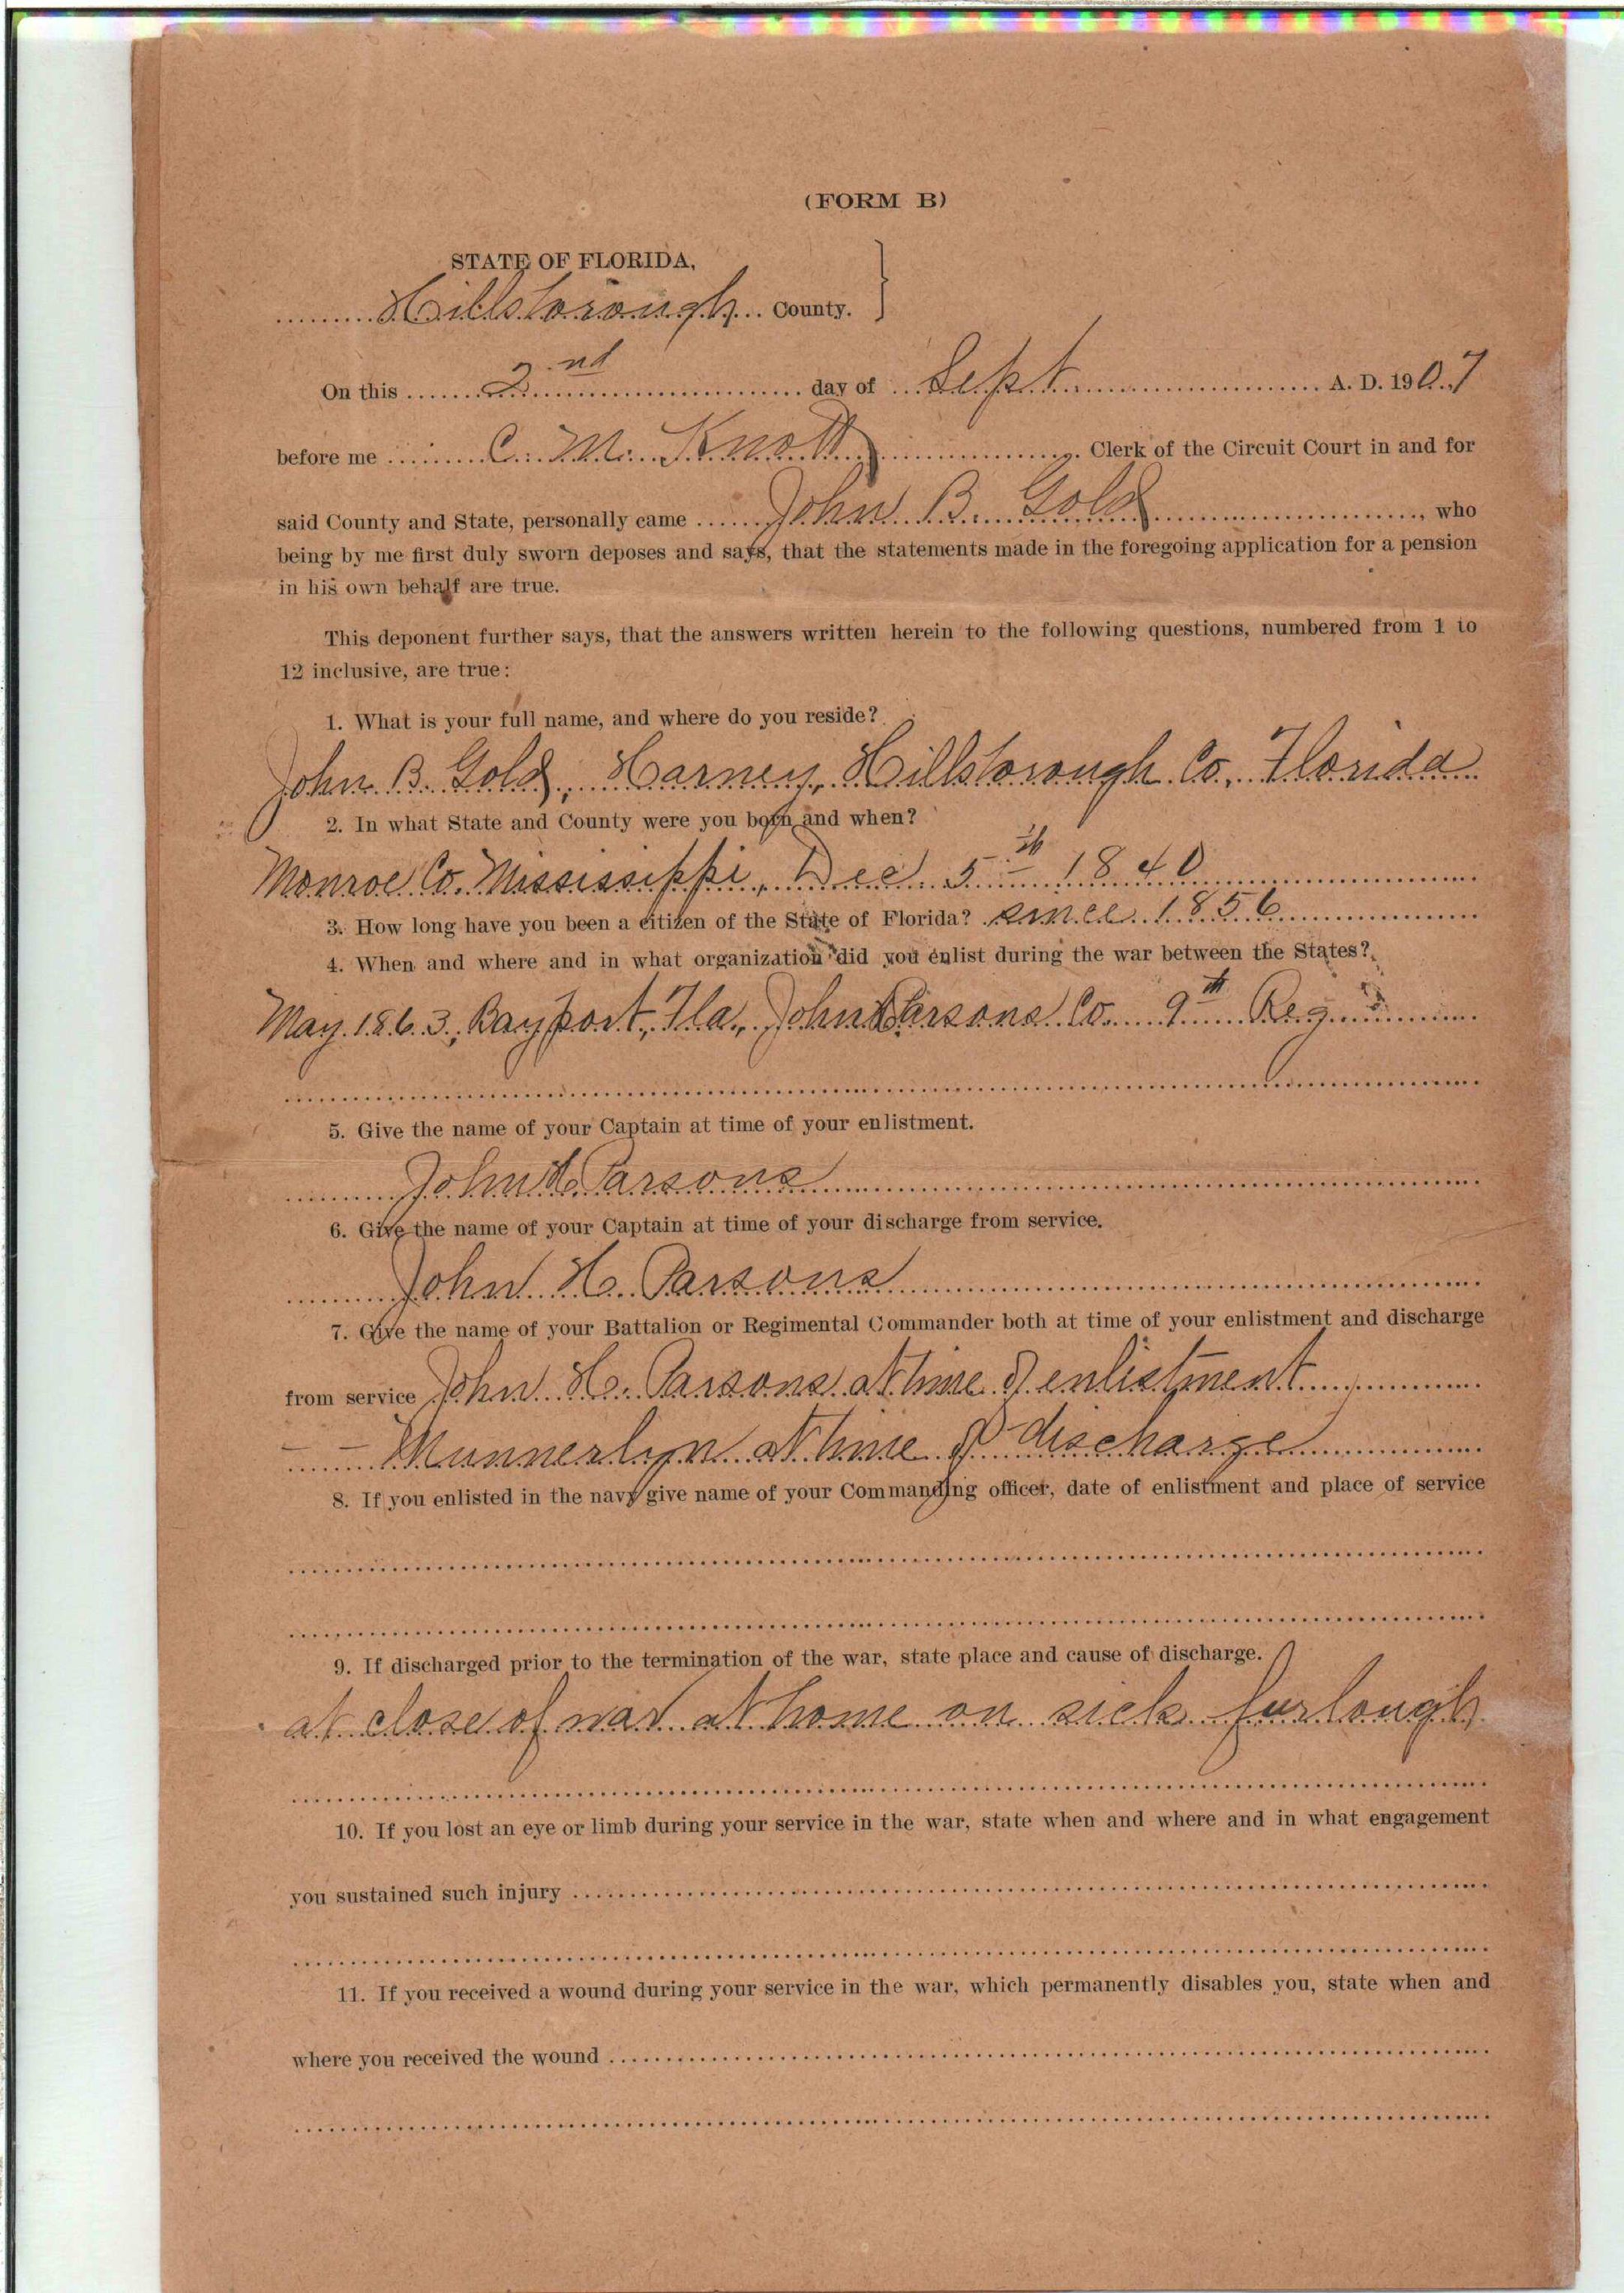 (FORM B)
STATE OF FLORIDA,
Hillsborough County.
On this 2nd day of Sept A. D. 1907
before me C. M. Knott, Clerk of the Circuit Court in and for
said County and State, personally came John B. Gold, who
being by me first duly sworn deposes and says, that the statements made in the foregoing application for a pension
in his own behalf are true.
This deponent further says, that the answers written herein to the following questions, numbered from 1 to
12 inclusive, are true:
1. What is your full name, and where do you reside?
John B. Gold, Harney, Hillsborough Co., Florida
2. In what State and County were you born and when?
Monroe Co. Mississippi, Dec 5th 1840
3. How long have you been a citizen of the State of Florida? since 1856
4. When and where and in what organization did you enlist during the war between the States?
May 1863, Bayport, Fla., John Parsons Co. 9th Reg
5. Give the name of your Captain at time of your enlistment.
John H. Parsons
6. Give the name of your Captain at time of your discharge from service.
John H. Parsons
7. Give the name of your Battalion or Regimental Commander both at time of your enlistment and discharge
from service John H. Parsons at time of enlistment
— — Munnerlyn at time of discharge
8. If you enlisted in the navy give name of your Commanding officer, date of enlistment and place of service
9. If discharged prior to the termination of the war, state place and cause of discharge.
at close of war at home on sick furlough
10. If you lost an eye or limb during your service in the war, state when and where and in what engagement
you sustained such injury
11. If you received a wound during your service in the war, which permanently disables you, state when and
where you received the wound